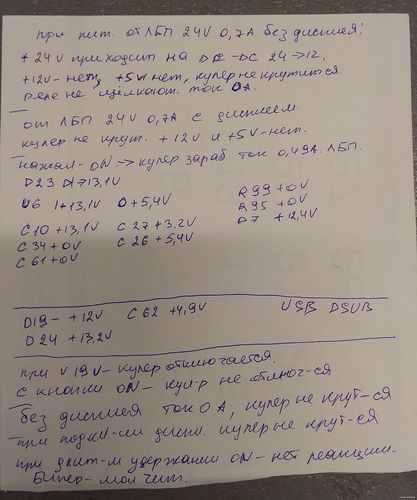 при пит. от ЛБП 24V 0,7А без дисплея!
+24V приходит на DC-DC 24→12,
+12V-нет, +5V нет, кулер не крутится.
реле не щёлкают. ток 0А.
от ЛБП 24V 0,7А с дисплеем.
кулер не крут. +12V и +5V-нет.
нажал-ON→кулер зараб. ток 0,49А ЛБП.
D23 +13,1V
U6 I+13,1V O+5,4V R99+0V
C10+13,1V C27+3,2V R95+0V
C34+0V C26+5,4V D7 +12,4V
C61+0V
D19- +12V C62 +4,9V USB DSUB
D24 +13,2V
при V19V-кулер отключается.
с кнопки ON-кул-р не включ-ся
без дисплея ток 0А, кулер не крут-ся
при подкл-ии диспл. кулер не крут-ся
при длит-м удержании ON-нет реакции.
Бипер-молчит.